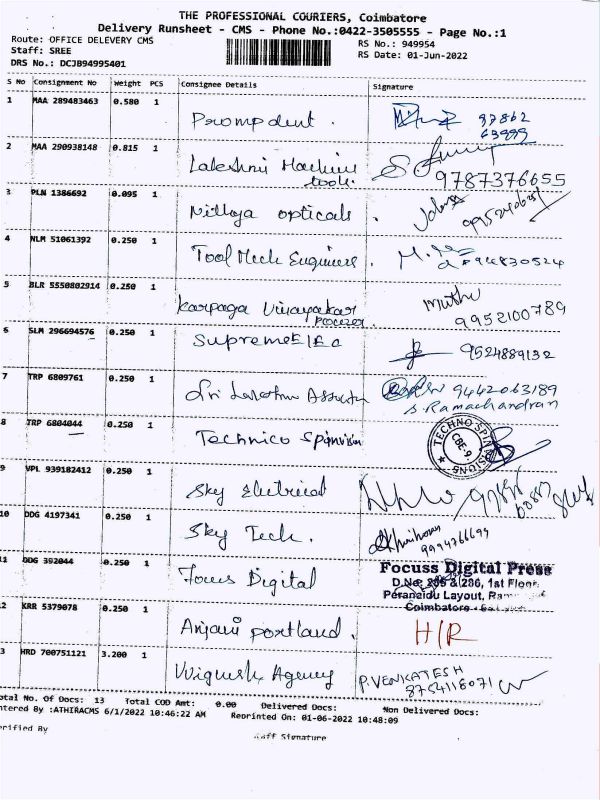 THE PROFESSIONAL COURIERS, Coimbatore
Delivery Runsheet - CMS - Phone No.:0422-3505555 - Page No.:1
Route: OFFICE DELEVERY CMS
Staff: SREE
DRS No.: DCJB94995401
RS No.: 949954
RS Date: 01-Jun-2022
S No Consignment No Weight PCS Consignee Details Signature
1 MAA 289483463 0.580 1 Prompdent. 97862
63999
2 MAA 290938148 0.815 1 Lakshmi Machine
tools. 9787376655
3 PLN 1386692 0.095 1 Nithya opticals.
4 NLM 51061392 0.250 1 Tool Mech Engineers.
5 BLR 5550802914 0.250 1 Karpaga Vinayakar Muthu
9952100789
6 SLM 296694576 0.250 1 Supreme Elec 9524889132
7 TRP 6809761 0.250 1 Sri Lakshmi 9442063189
S. Ramachandran
8 TRP 6804044 0.250 1 Technico TECHNO SPIN
CBE-9
9 VPL 939182412 0.250 1 Sky Electrical
10 DDG 4197341 0.250 1 Sky Tech. 9994766699
11 DDG 392044 0.250 1 Focus Digital Focuss Digital Press
1st Floor,
Peranaidu Layout,
Coimbatore
12 KRR 5379078 0.250 1 Anjani portland. H/R
13 HRD 700751121 3.200 1 Agency P. VENKATESH
8754116071
Total No. Of Docs: 13 Total COD Amt: 0.00 Delivered Docs: Non Delivered Docs:
ntered By :ATHIRACMS 6/1/2022 10:46:22 AM Reprinted On: 01-06-2022 10:48:09
erified By
aff Signature